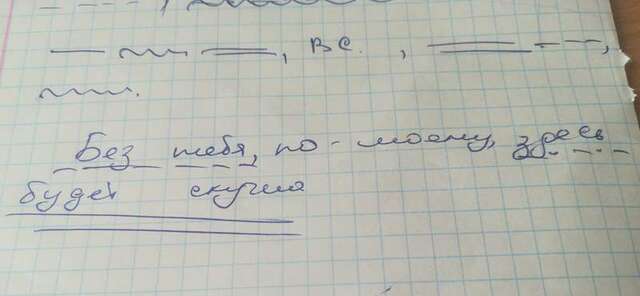 , вс. ,
Без тебя, по-моему, здесь
будет скучно